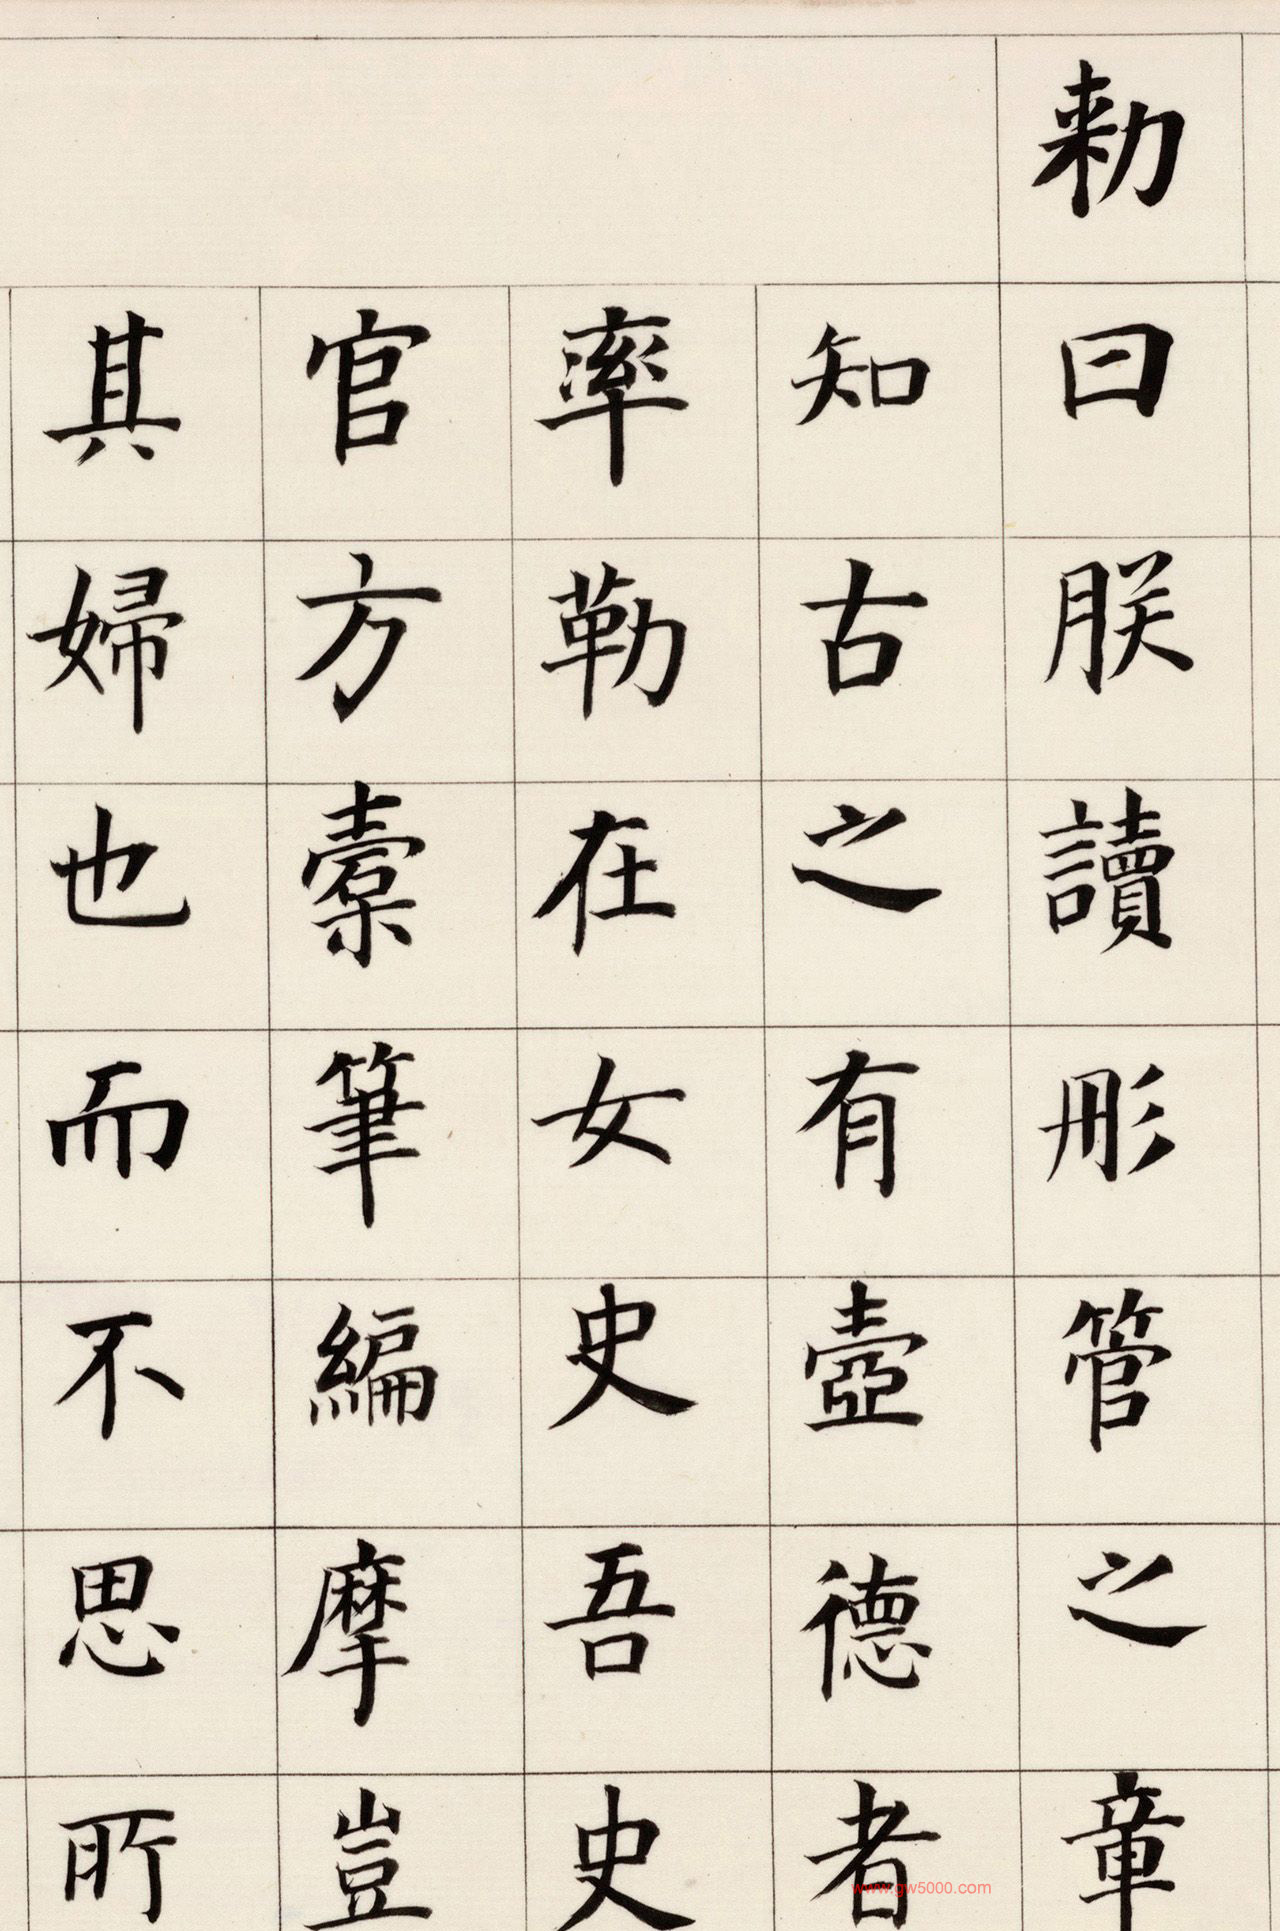 勑曰朕讀彤管之章
知古之有壼德者
率勒在女史吾史
官方橐筆編摩豈
其婦也而不思所
www.gw5000.com